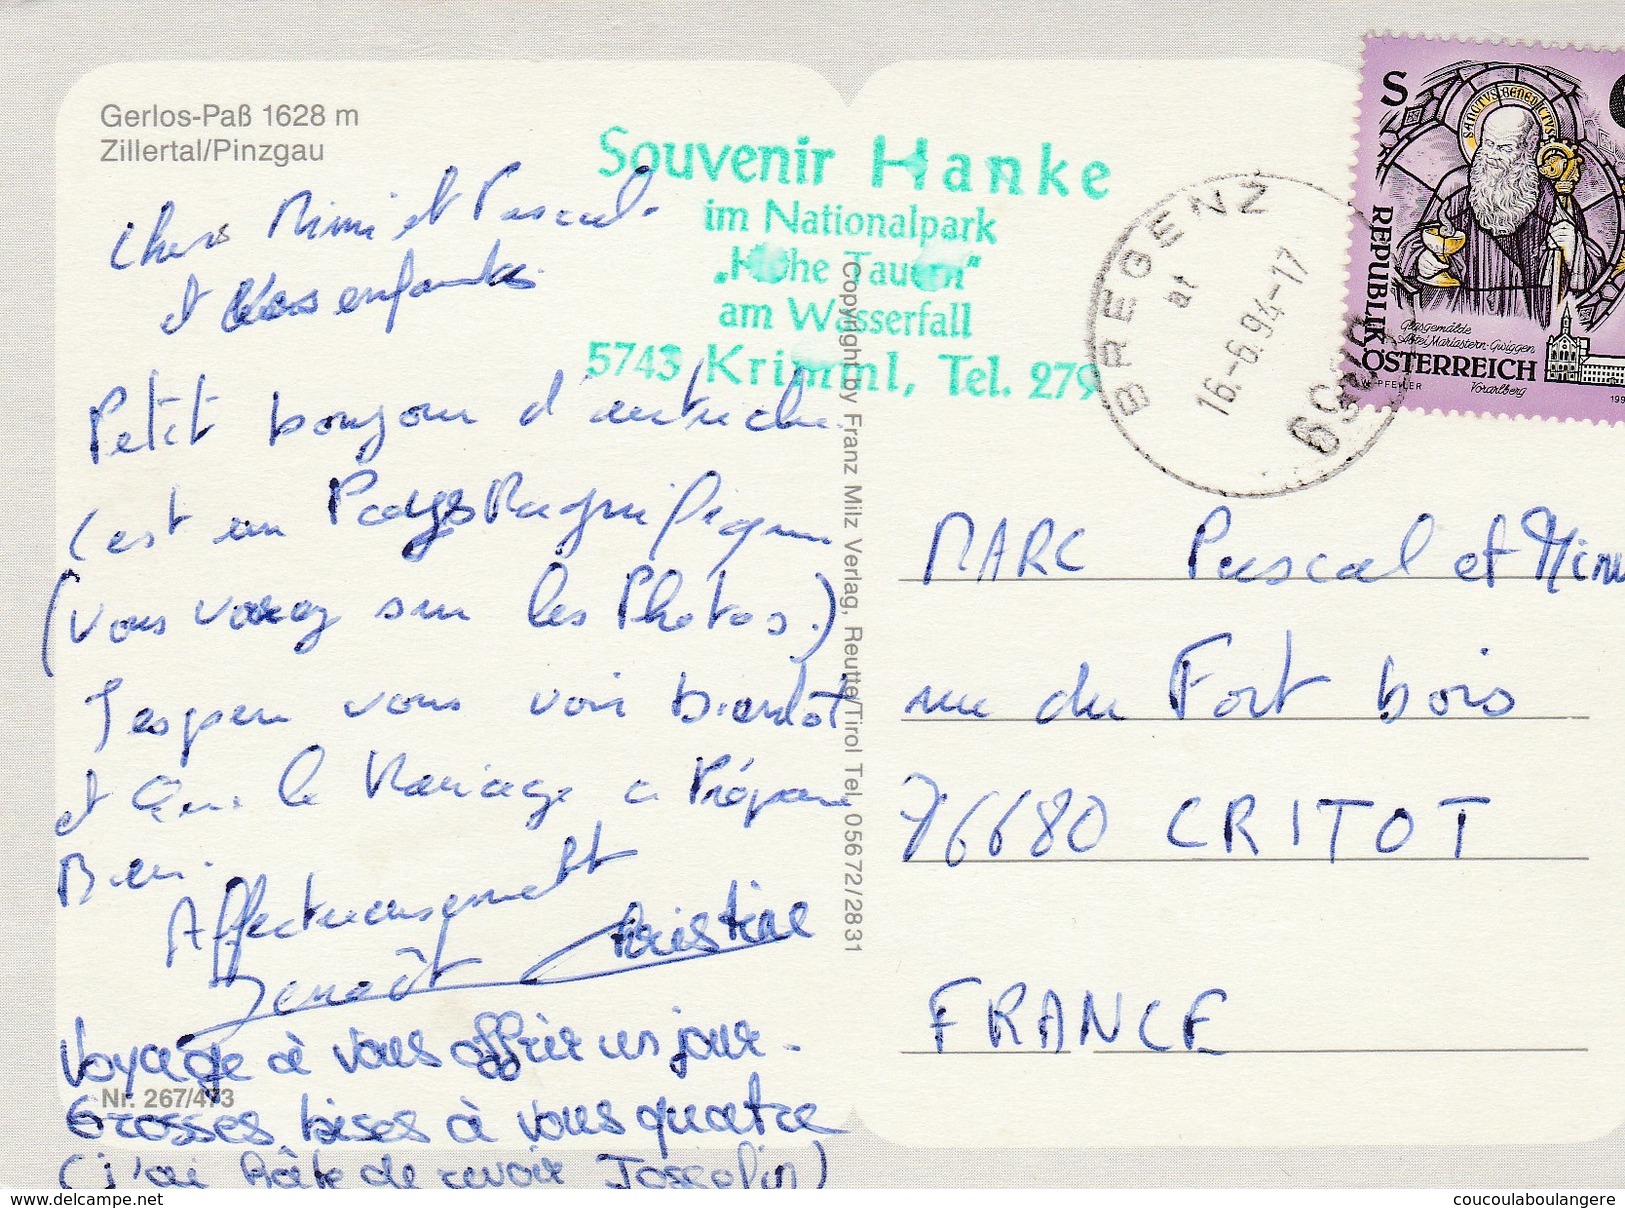 Gerlos-Paß 1628 m
Zillertal/Pinzgau
Souvenir Hanke
im Nationalpark
„Hohe Tauern"
am Wasserfall
5743 Krimml, Tel. 279
BREGENZ
at
16.-6.94-17
6900
S
SANCTVS BENEDICTVS
REPUBLIK
ÖSTERREICH
Glasgemälde
Abtei Mariastern-Gwiggen
Vorarlberg
W. PFEILER
199
Chers Mimi et Pascal.
et Vos enfants.
Petit bonjour d'autriche
C'est un Pays Magnifique
(Vous verez sur les Photos.)
J'espere vous voir bientôt
et Que le Mariage ce Prépare
Bien.
Affectueusement
Benoît Christine
Voyage à vous offrir un jour.
Nr. 267/473
Grosses bises à vous quatre
(j'ai hâte de revoir Josselin)
Copyright by Franz Milz Verlag, Reutte/Tirol Tel. 05672/2831
MARC Pascal et Mimi
rue du Fort bois
76680 CRITOT
FRANCE
www.delcampe.net
coucoulaboulangere